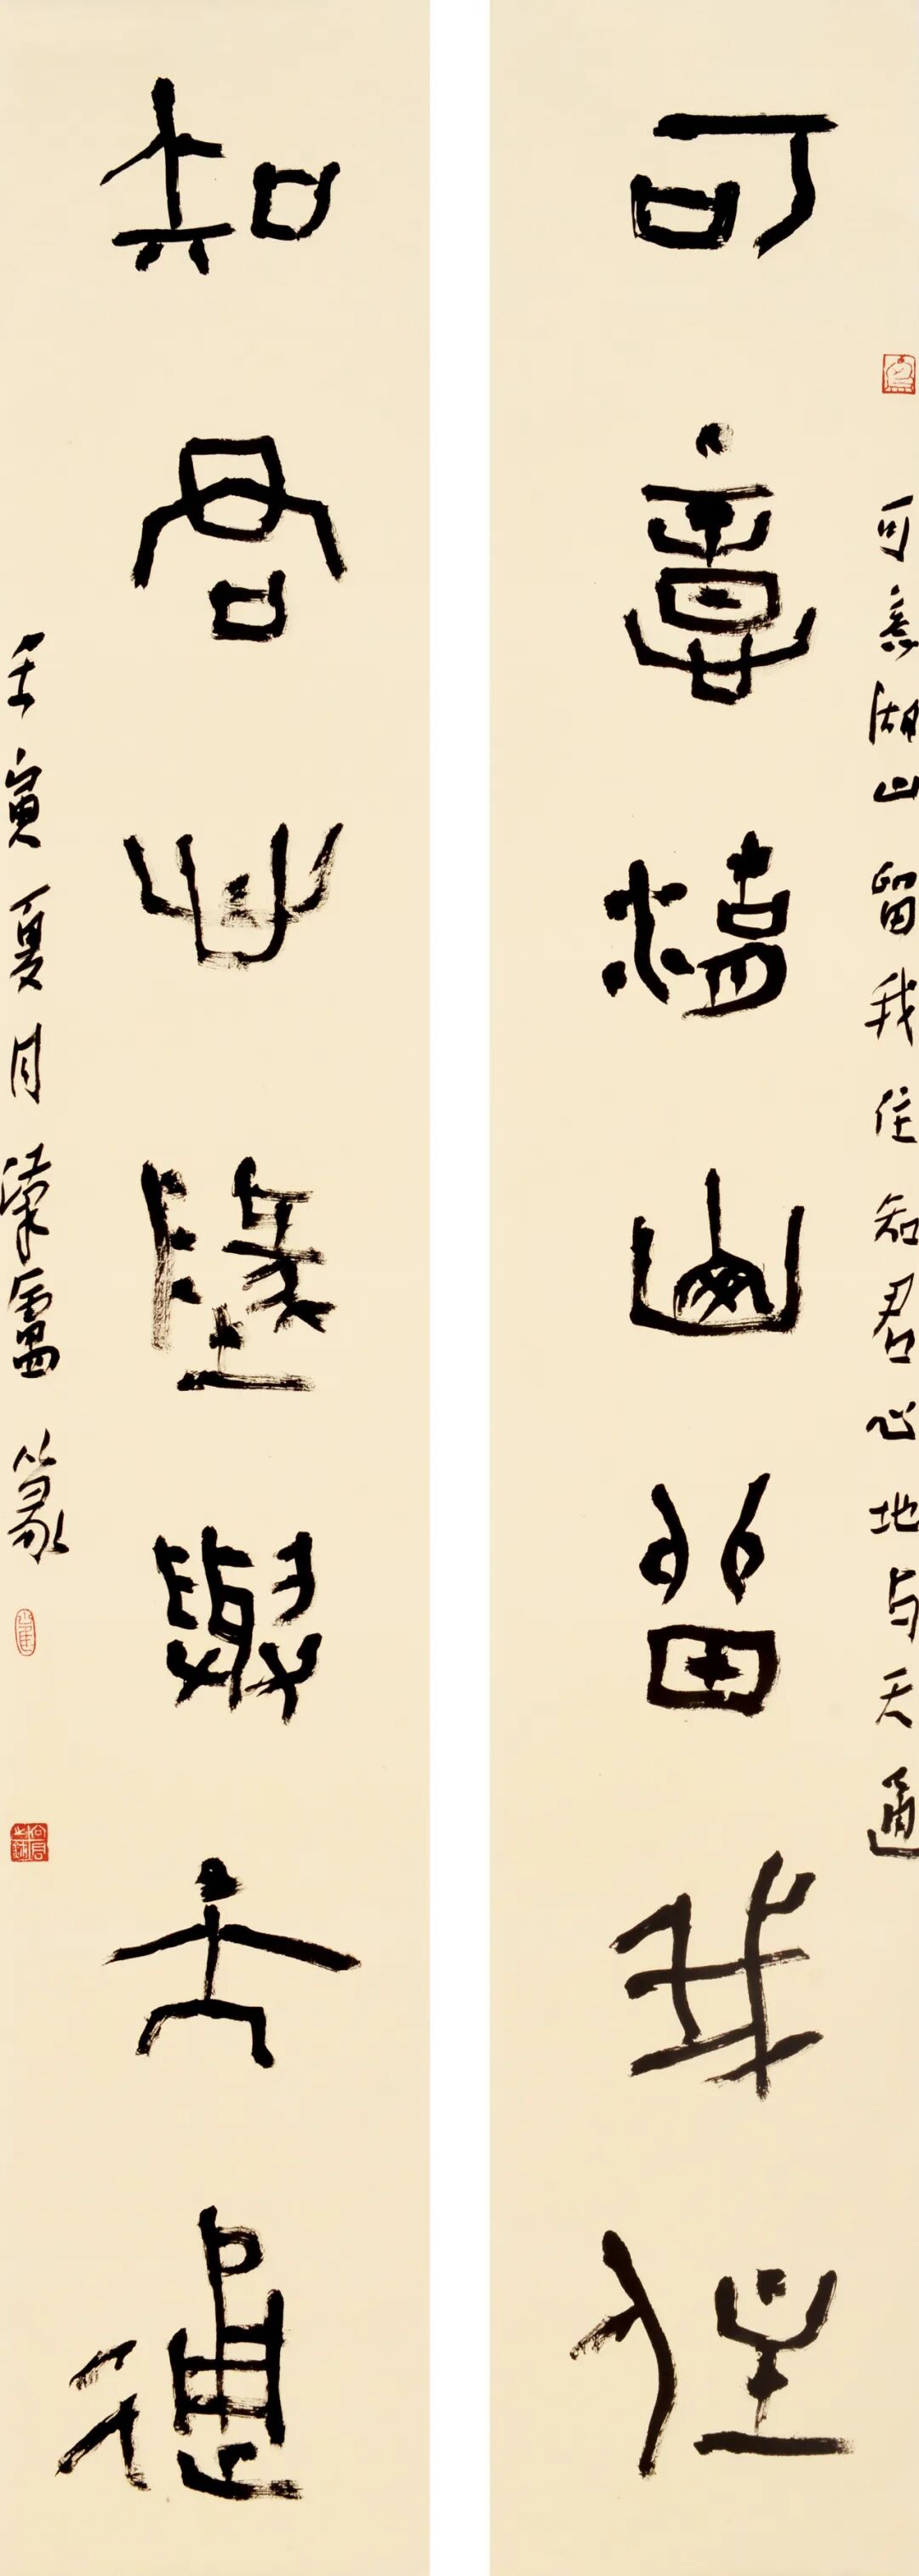 可意湖山留我住
可意湖山留我住知君心地与天通
知君心地與天通
壬寅夏月 篆